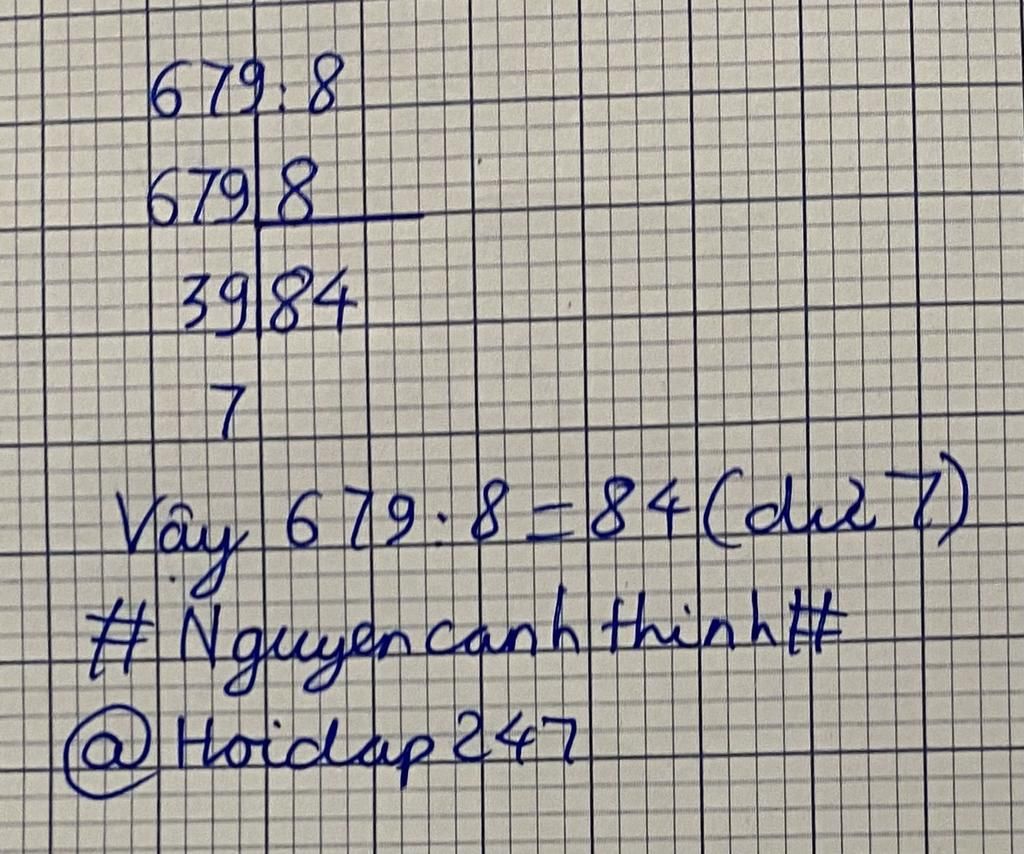 679:8
679 8
39 84
7
Vậy 679:8=84(dư 7)
#Nguyencanhthinh#
@Hoidap247